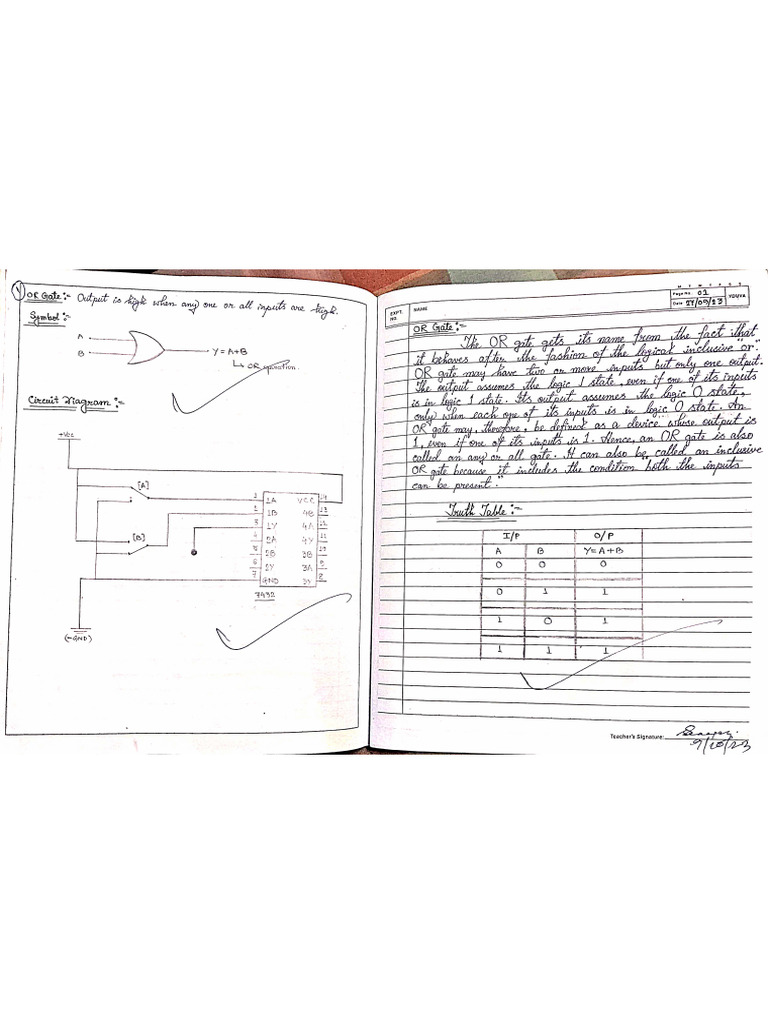 1) OR Gate :- Output is high when any one or all inputs are high.
Symbol :-
A
B
Y = A+B
↳ OR equation.
Circuit Diagram :-
+Vcc
[A]
[B]
1 1A VCC 14
2 1B 4B 13
3 1Y 4A 12
4 2A 4Y 11
5 2B 3B 10
6 2Y 3A 9
7 GND 3Y 8
7432
(-GND)
Page No. 02
Date 27/09/23
YOUVA
EXPT. NO.
NAME
OR Gate :-
The OR gate gets its name from the fact that
it behaves after the fashion of the logical inclusive "or".
OR gate may have two or more inputs but only one output.
The output assumes the logic 1 state, even if one of its inputs
is in logic 1 state. Its output assumes the logic 0 state,
only when each one of its inputs is in logic 0 state. An
OR gate may, therefore, be defined as a device whose output is
1, even if one of its inputs is 1. Hence, an OR gate is also
called an any or all gate. It can also be called an inclusive
OR gate because it includes the condition "both the inputs
can be present."
Truth Table :-
I/P O/P
A B Y=A+B
0 0 0
0 1 1
1 0 1
1 1 1
Teacher's Signature:
9/10/23